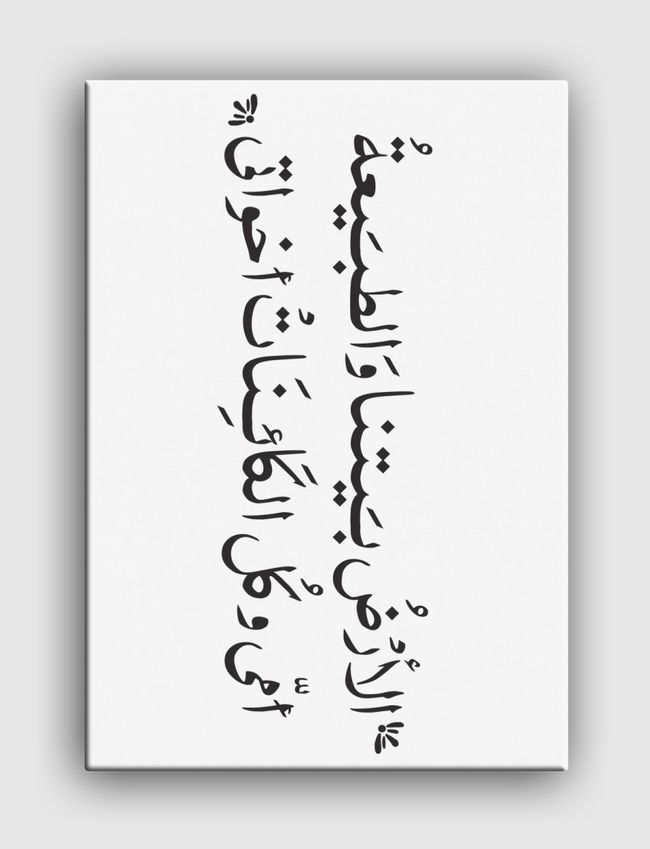 الأرْضُ بَيتنا وَالطبَيعةُ
أمّى وكُل الكَائِنَاتُ أخواتى